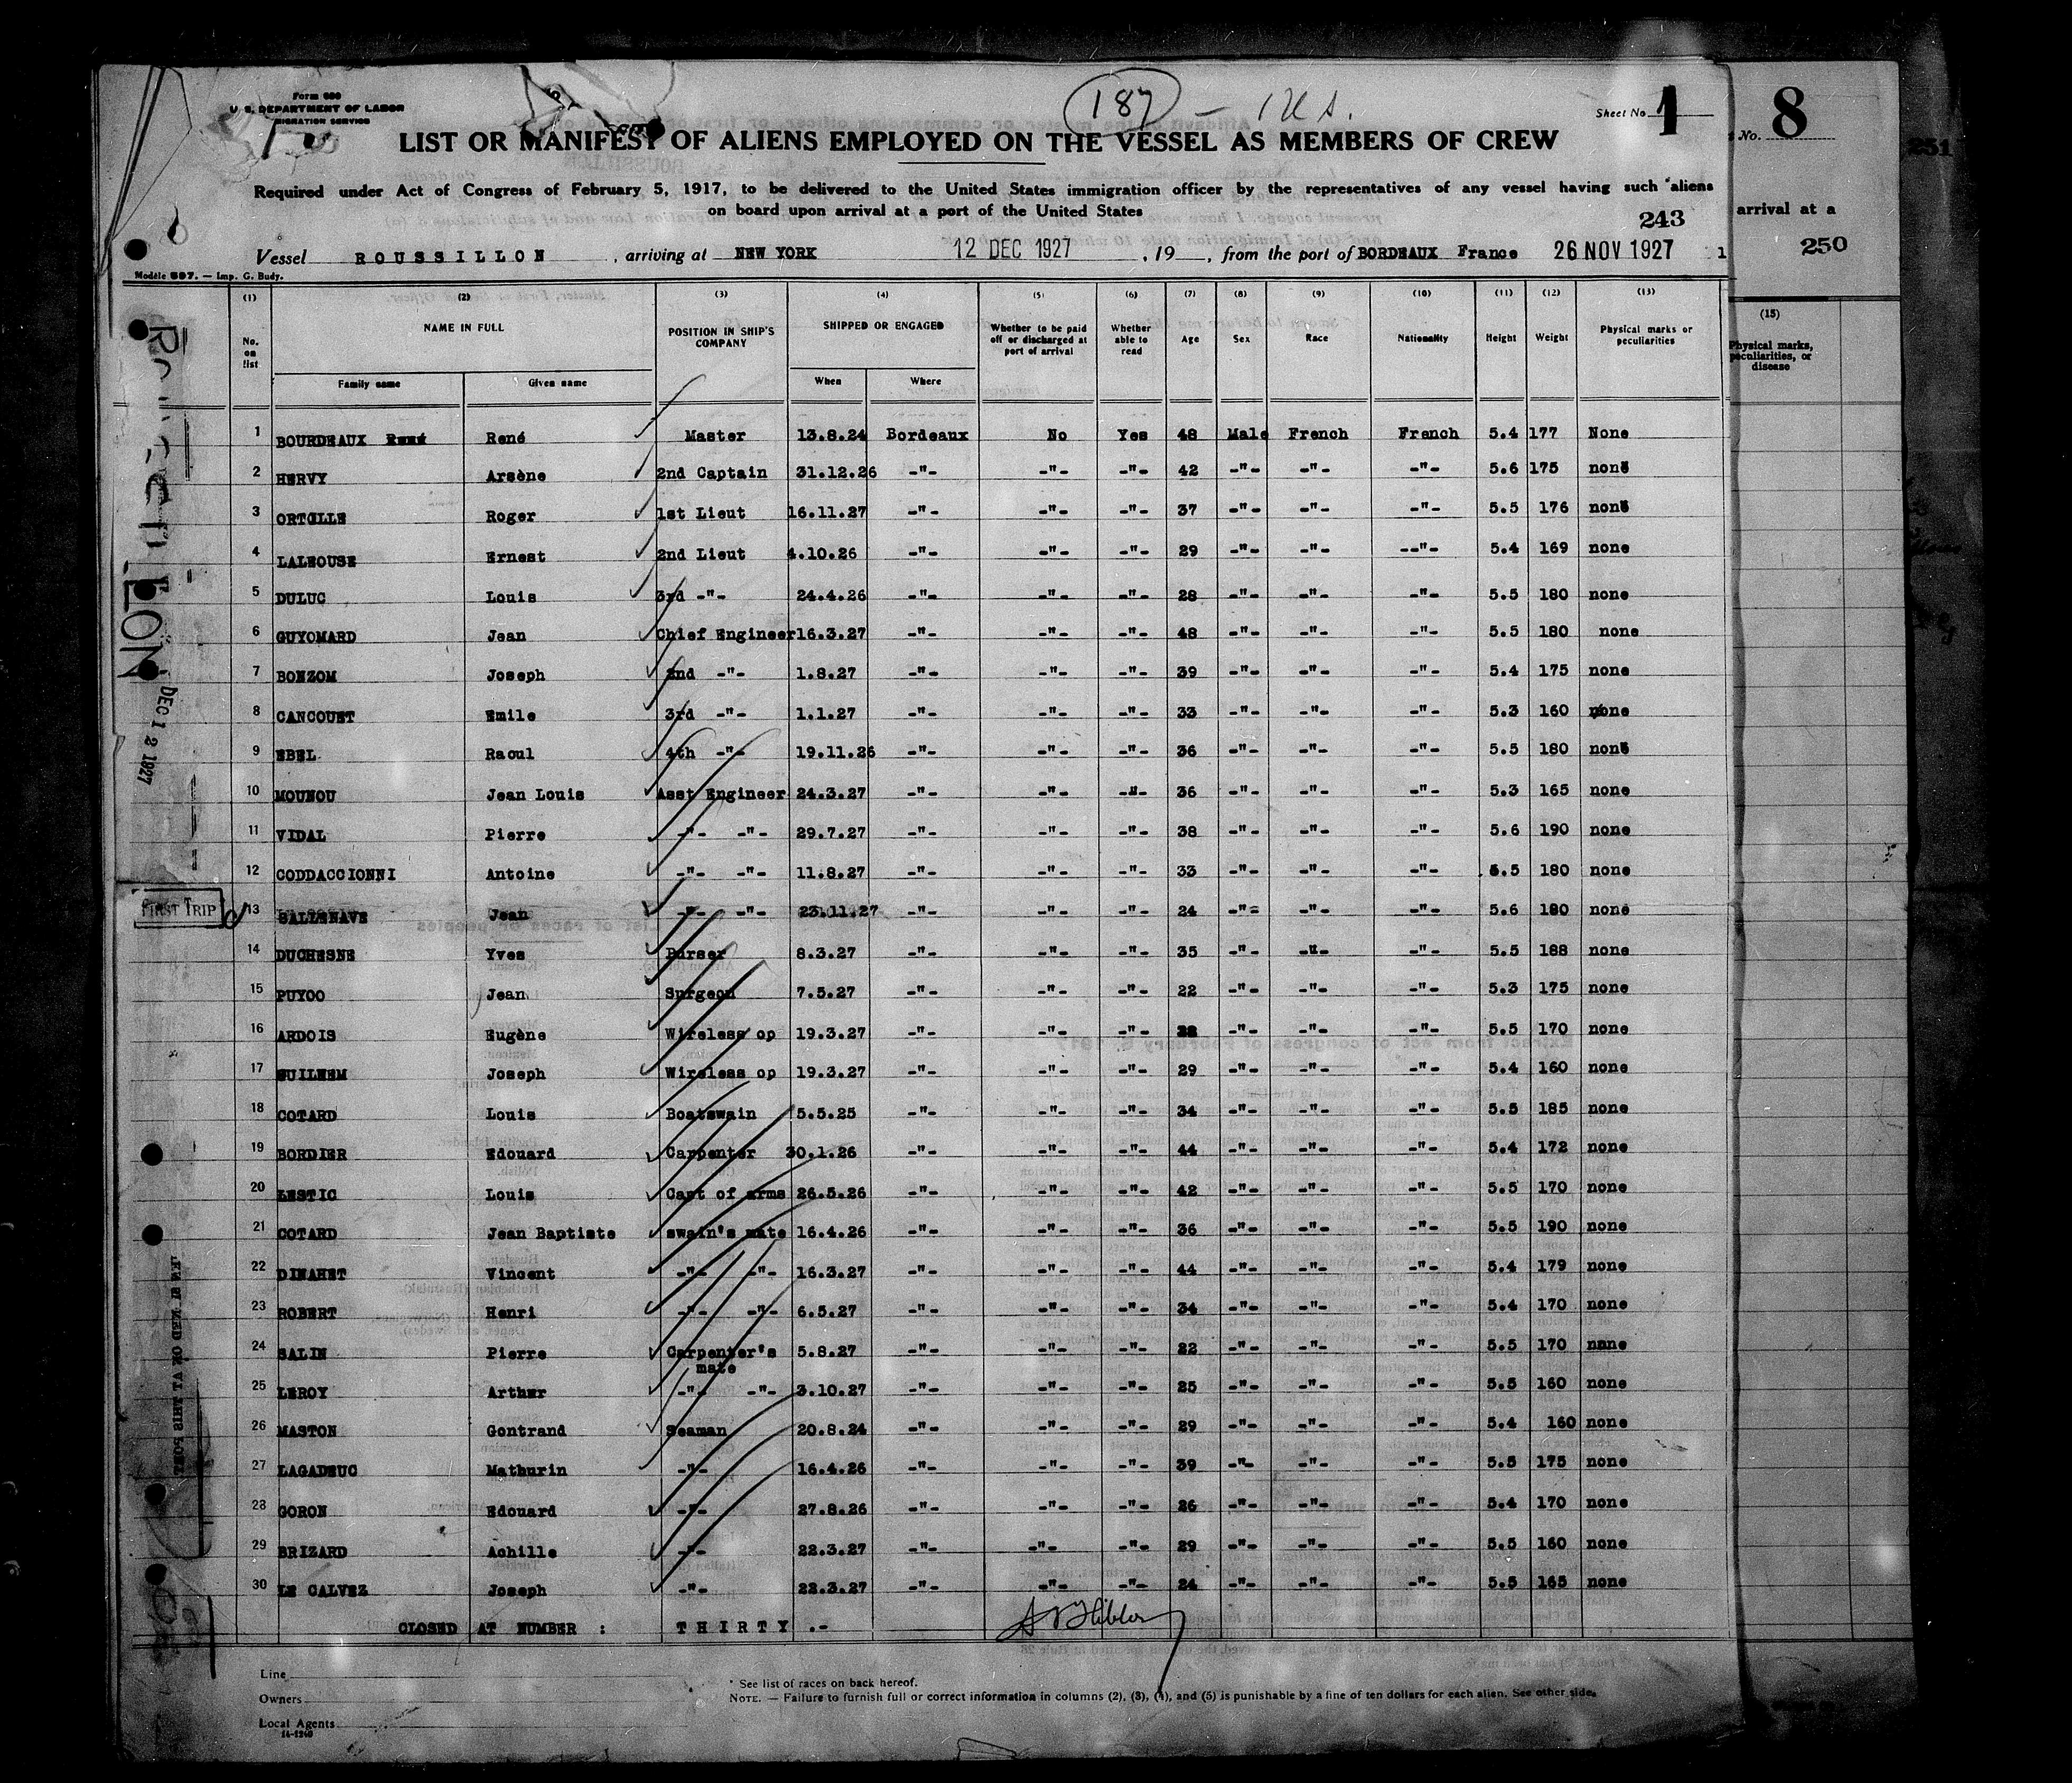 Form 680
U. S. DEPARTMENT OF LABOR
MIGRATION SERVICE
187
Sheet No 1
No. 8
251
LIST OR MANIFEST OF ALIENS EMPLOYED ON THE VESSEL AS MEMBERS OF CREW
Required under Act of Congress of February 5, 1917, to be delivered to the United States immigration officer by the representatives of any vessel having such aliens
on board upon arrival at a port of the United States
arrival at a
243
250
Vessel ROUSSILLON, arriving at NEW YORK 12 DEC 1927, 19, from the port of BORDEAUX France 26 NOV 1927 1
Modèle 597. — Imp. G. Budy.
(1) (2) (3) (4) (5) (6) (7) (8) (9) (10) (11) (12) (13) (15)
No. on list NAME IN FULL POSITION IN SHIP'S COMPANY SHIPPED OR ENGAGED Whether to be paid off or discharged at port of arrival Whether able to read Age Sex Race Nationality Height Weight Physical marks or peculiarities
Physical marks, peculiarities, or disease
Family name Given name When Where
1 BOURDEAUX René René Master 13.8.24 Bordeaux No Yes 48 Male French French 5.4 177 None
2 HERVY Arsène 2nd Captain 31.12.26 -"- -"- -"- 42 -"- -"- -"- 5.6 175 none
3 ORTOLLE Roger 1st Lieut 16.11.27 -"- -"- -"- 37 -"- -"- -"- 5.5 176 none
4 LALHOUSE Ernest 2nd Lieut 4.10.26 -"- -"- -"- 29 -"- -"- --"- 5.4 169 none
5 DULUC Louis 3rd -"- 24.4.26 -"- -"- -"- 28 -"- -"- -"- 5.5 180 none
6 GUYOMARD Jean Chief Engineer 16.3.27 -"- -"- -"- 48 -"- -"- -"- 5.5 180 none
7 BONZOM Joseph 2nd -"- 1.8.27 -"- -"- -"- 39 -"- -"- -"- 5.4 175 none
8 CANCOUET Emile 3rd -"- 1.1.27 -"- -"- -"- 33 -"- -"- -"- 5.3 160 none
9 EBEL Raoul 4th -"- 19.11.26 -"- -"- -"- 36 -"- -"- -"- 5.5 180 none
10 MOUNOU Jean Louis Asst Engineer 24.3.27 -"- -"- -"- 36 -"- -"- -"- 5.3 165 none
11 VIDAL Pierre -"- -"- 29.7.27 -"- -"- -"- 38 -"- -"- -"- 5.6 190 none
12 CODDACCIONNI Antoine -"- -"- 11.8.27 -"- -"- -"- 33 -"- -"- -"- 5.5 180 none
FIRST TRIP 13 SALLENAVE Jean -"- -"- 23.11.27 -"- -"- -"- 24 -"- -"- -"- 5.6 180 none
14 DUCHESNE Yves Purser 8.3.27 -"- -"- -"- 35 -"- -"- -"- 5.5 188 none
15 PUYOO Jean Surgeon 7.5.27 -"- -"- -"- 22 -"- -"- -"- 5.3 175 none
16 ARDOIS Eugène Wireless op 19.3.27 -"- -"- -"- -"- -"- -"- 5.5 170 none
17 GUILHEM Joseph Wireless op 19.3.27 -"- -"- -"- 29 -"- -"- -"- 5.4 160 none
18 COTARD Louis Boatswain 5.5.25 -"- -"- -"- 34 -"- -"- -"- 5.5 185 none
19 BORDIER Edouard Carpenter 30.1.26 -"- -"- -"- 44 -"- -"- -"- 5.4 172 none
20 LESTIC Louis Capt of arms 26.5.26 -"- -"- -"- 42 -"- -"- -"- 5.5 170 none
21 COTARD Jean Baptiste swain's mate 16.4.26 -"- -"- -"- 36 -"- -"- -"- 5.5 190 none
22 DINAHET Vincent -"- -"- 16.3.27 -"- -"- -"- 44 -"- -"- -"- 5.4 179 none
23 ROBERT Henri -"- -"- 6.5.27 -"- -"- -"- 34 -"- -"- -"- 5.4 170 none
24 SALIN Pierre Carpenter's mate 5.8.27 -"- -"- -"- 22 -"- -"- -"- 5.5 170 nane
25 LEROY Arthur -"- -"- 3.10.27 -"- -"- -"- 25 -"- -"- -"- 5.5 160 none
26 MASTON Gontrand Seaman 20.8.24 -"- -"- -"- 29 -"- -"- -"- 5.4 160 none
27 LAGADEUC Mathurin -"- 16.4.26 -"- -"- -"- 39 -"- -"- -"- 5.5 175 none
28 GORON Edouard -"- 27.8.26 -"- -"- -"- 26 -"- -"- -"- 5.4 170 none
29 BRIZARD Achille -"- 22.3.27 -"- -"- -"- 29 -"- -"- -"- 5.5 160 none
30 LE CALVEZ Joseph -"- 22.3.27 -"- -"- -"- 24 -"- -"- -"- 5.5 165 none
CLOSED AT NUMBER : THIRTY .-
Line
Owners
Local Agents
14-1240
* See list of races on back hereof.
NOTE. — Failure to furnish full or correct information in columns (2), (3), (4), and (5) is punishable by a fine of ten dollars for each alien. See other side.
DEC 12 1927